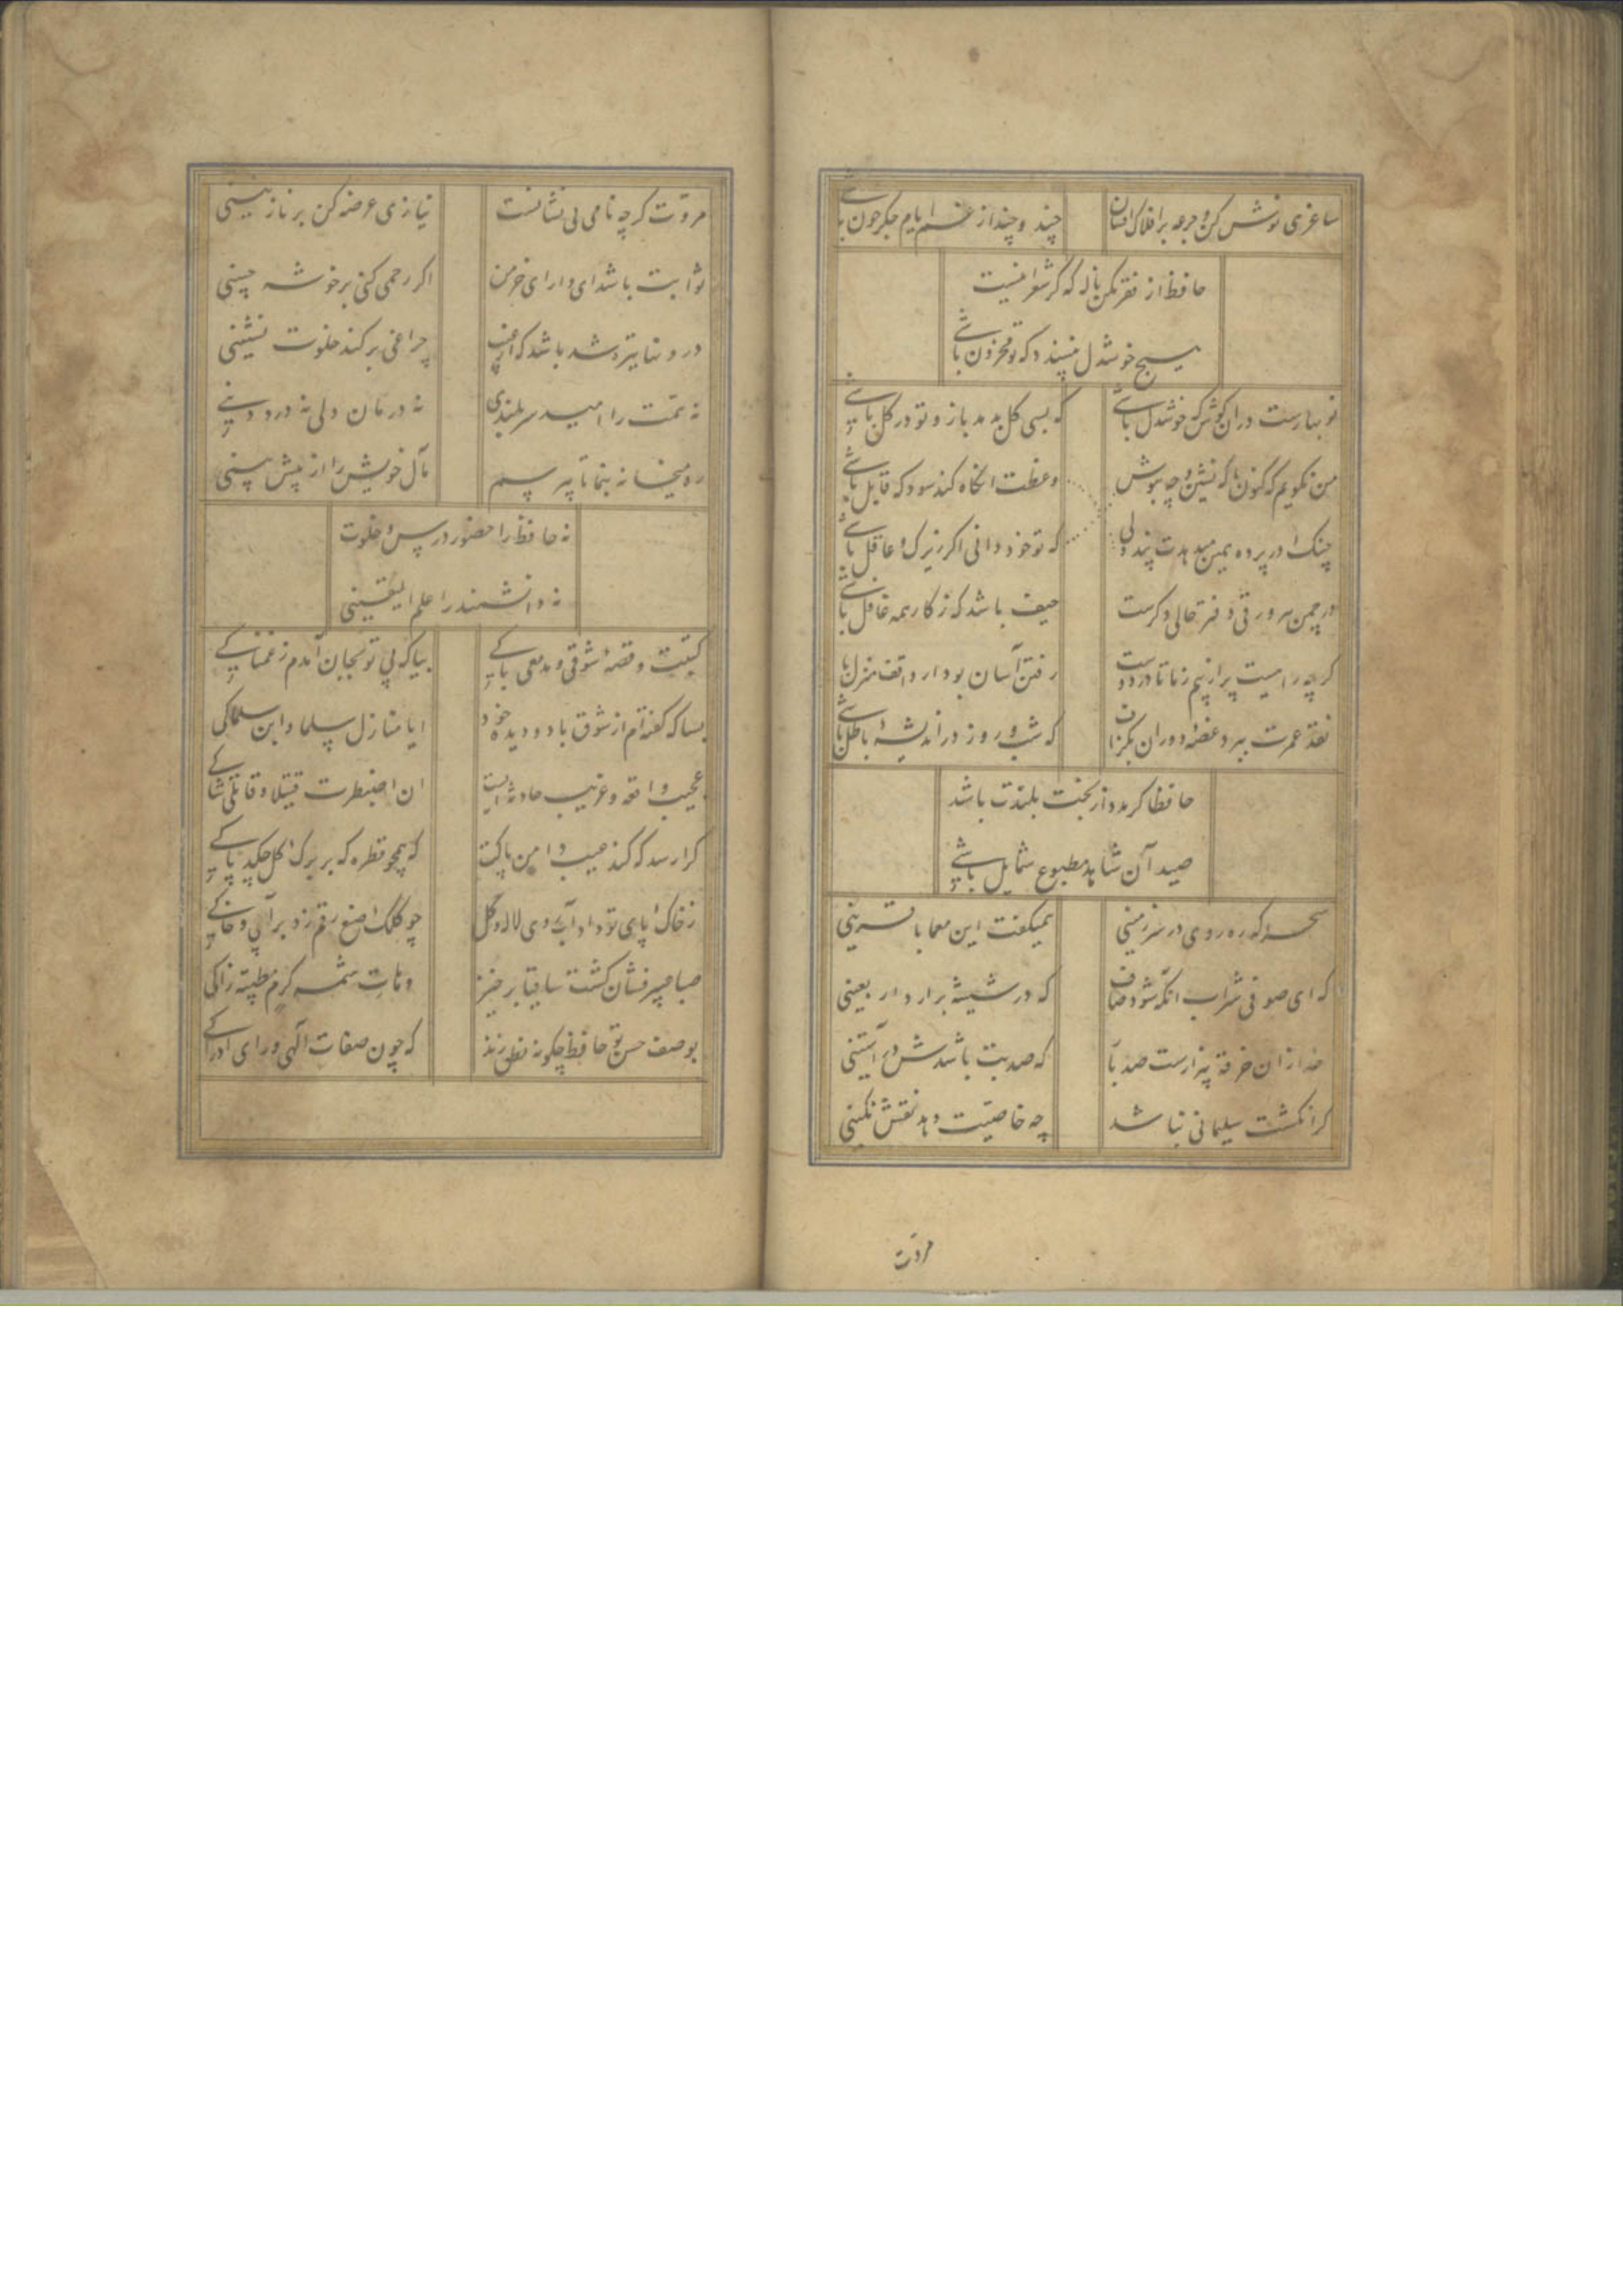 ساغری نوش کن و جرعه بر افلاک افشان
چند و چند از غم ایام جگرخون باشی
حافظ از فقر مکن ناله که گر شعر اینست
هیچ خوشدل نپسندد که تو محزون باشی
نوبهارست در آن کوش که خوشدل باشی
که بسی گل بدمد باز و تو در گل باشی
من نگویم که کنون با که نشین و چه بنوش
وعظت آنگاه کند سود که قابل باشی
چنگ در پرده همین میدهدت پند ولی
که تو خود دانی اگر زیرک و عاقل باشی
در چمن هر ورقی دفتر حالی دگرست
حیف باشد که ز کار همه غافل باشی
گرچه راهیست پر از بیم ز ما تا در دوست
رفتن آسان بود ار واقف منزل باشی
نقد عمرت ببرد غصه دوران بگزاف
که شب و روز در اندیشه باطل باشی
حافظا گر مدد از بخت بلندت باشد
صید آن شاهد مطبوع شمایل باشی
سحر که رهروی در سرزمینی
همیگفت این معما با قرینی
که ای صوفی شراب آنگه شود صاف
که در شیشه برآرد اربعینی
خدا زان خرقه بیزارست صد بار
که صد بت باشدش در آستینی
گر انگشت سلیمانی نباشد
چه خاصیت دهد نقش نگینی
مروت
مروّت گرچه نامی بی نشانست
نیازی عرضه کن بر نازنینی
ثوابت باشد ای دارای خرمن
اگر رحمی کنی بر خوشه چینی
درونها تیره شد باشد که از غیب
چراغی بر کند خلوت نشینی
نه همّت را امید سربلندی
نه درمان دلی نه درد دینی
ره میخانه بنما تا بپرسم
مآل خویش را از پیش بینی
نه حافظ را حضور درس و خلوت
نه دانشمند را علم الیقینی
کتبت وقصة شوقی ومدمعی باکی
بیا که بی تو بجان آمدم ز غمناکی
بسا که گفته‌ام از شوق با دو دیده خود
ایا منازل سلما و این سلماکی
عجیب واقعه و غریب حادثه ایست
ان اصطبرت قتیلا و قاتلی شاکی
کرا رسد که کند عیب دامن پاکت
که همچو قطره که بر برگ گل چکد پاکی
ز خاک پای تو داد آب روی لاله و گل
چو کلک صنع رقم زد بر آبی و خاکی
صبا عبیر فشان گشت ساقیا برخیز
وهات شمسة کرم مطیبة زاکی
بوصف حسن تو حافظ چگونه نطق زند
که چون صفات الهی ورای ادراکی